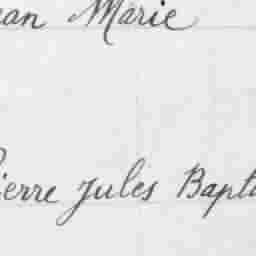 ean Marie
ierre Jules Bapt